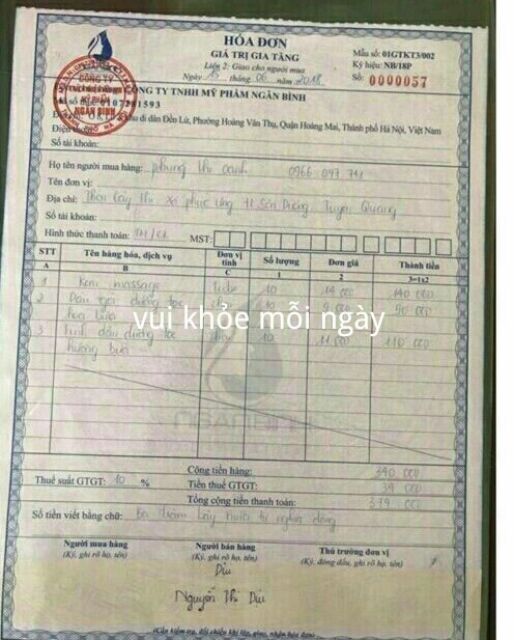 HÓA ĐƠN
GIÁ TRỊ GIA TĂNG
Liên 2: Giao cho người mua
Ngày 15 tháng 06 năm 2018
Mẫu số: 01GTKT3/002
Ký hiệu: NB/18P
Số: 0000057
CÔNG TY
NGÂN BÌNH
CÔNG TY TNHH MỸ PHẨM NGÂN BÌNH
di dân Đền Lừ, Phường Hoàng Văn Thụ, Quận Hoàng Mai, Thành phố Hà Nội, Việt Nam
Điện thoại:
Số tài khoản:
Họ tên người mua hàng: Phùng Thị Oanh 0966 097 711
Tên đơn vị:
Địa chỉ: Xã Phục Ứng H. Sơn Dương Tuyên Quang
Số tài khoản:
Hình thức thanh toán: TM/CK MST:
STT Tên hàng hóa, dịch vụ Đơn vị tính Số lượng Đơn giá Thành tiền
A B C 1 2 3=1x2
1 Kem massage 10 14 000 140 000
2 Dầu gội dưỡng tóc 10 9 000 90 000
3 Tinh dầu dưỡng tóc 10 11 000 110 000
hương bưởi
vui khỏe mỗi ngày
NGANBINH
Cộng tiền hàng: 340 000
Thuế suất GTGT: 10 % Tiền thuế GTGT: 34 000
Tổng cộng tiền thanh toán: 374 000
Số tiền viết bằng chữ: Ba trăm bảy mươi tư nghìn đồng
Người mua hàng Người bán hàng Thủ trưởng đơn vị
(Ký, ghi rõ họ, tên) (Ký, ghi rõ họ, tên) (Ký, đóng dấu, ghi rõ họ, tên)
Dịu
Nguyễn Thị Dịu
(Cần kiểm tra, đối chiếu khi lập, giao, nhận hóa đơn)